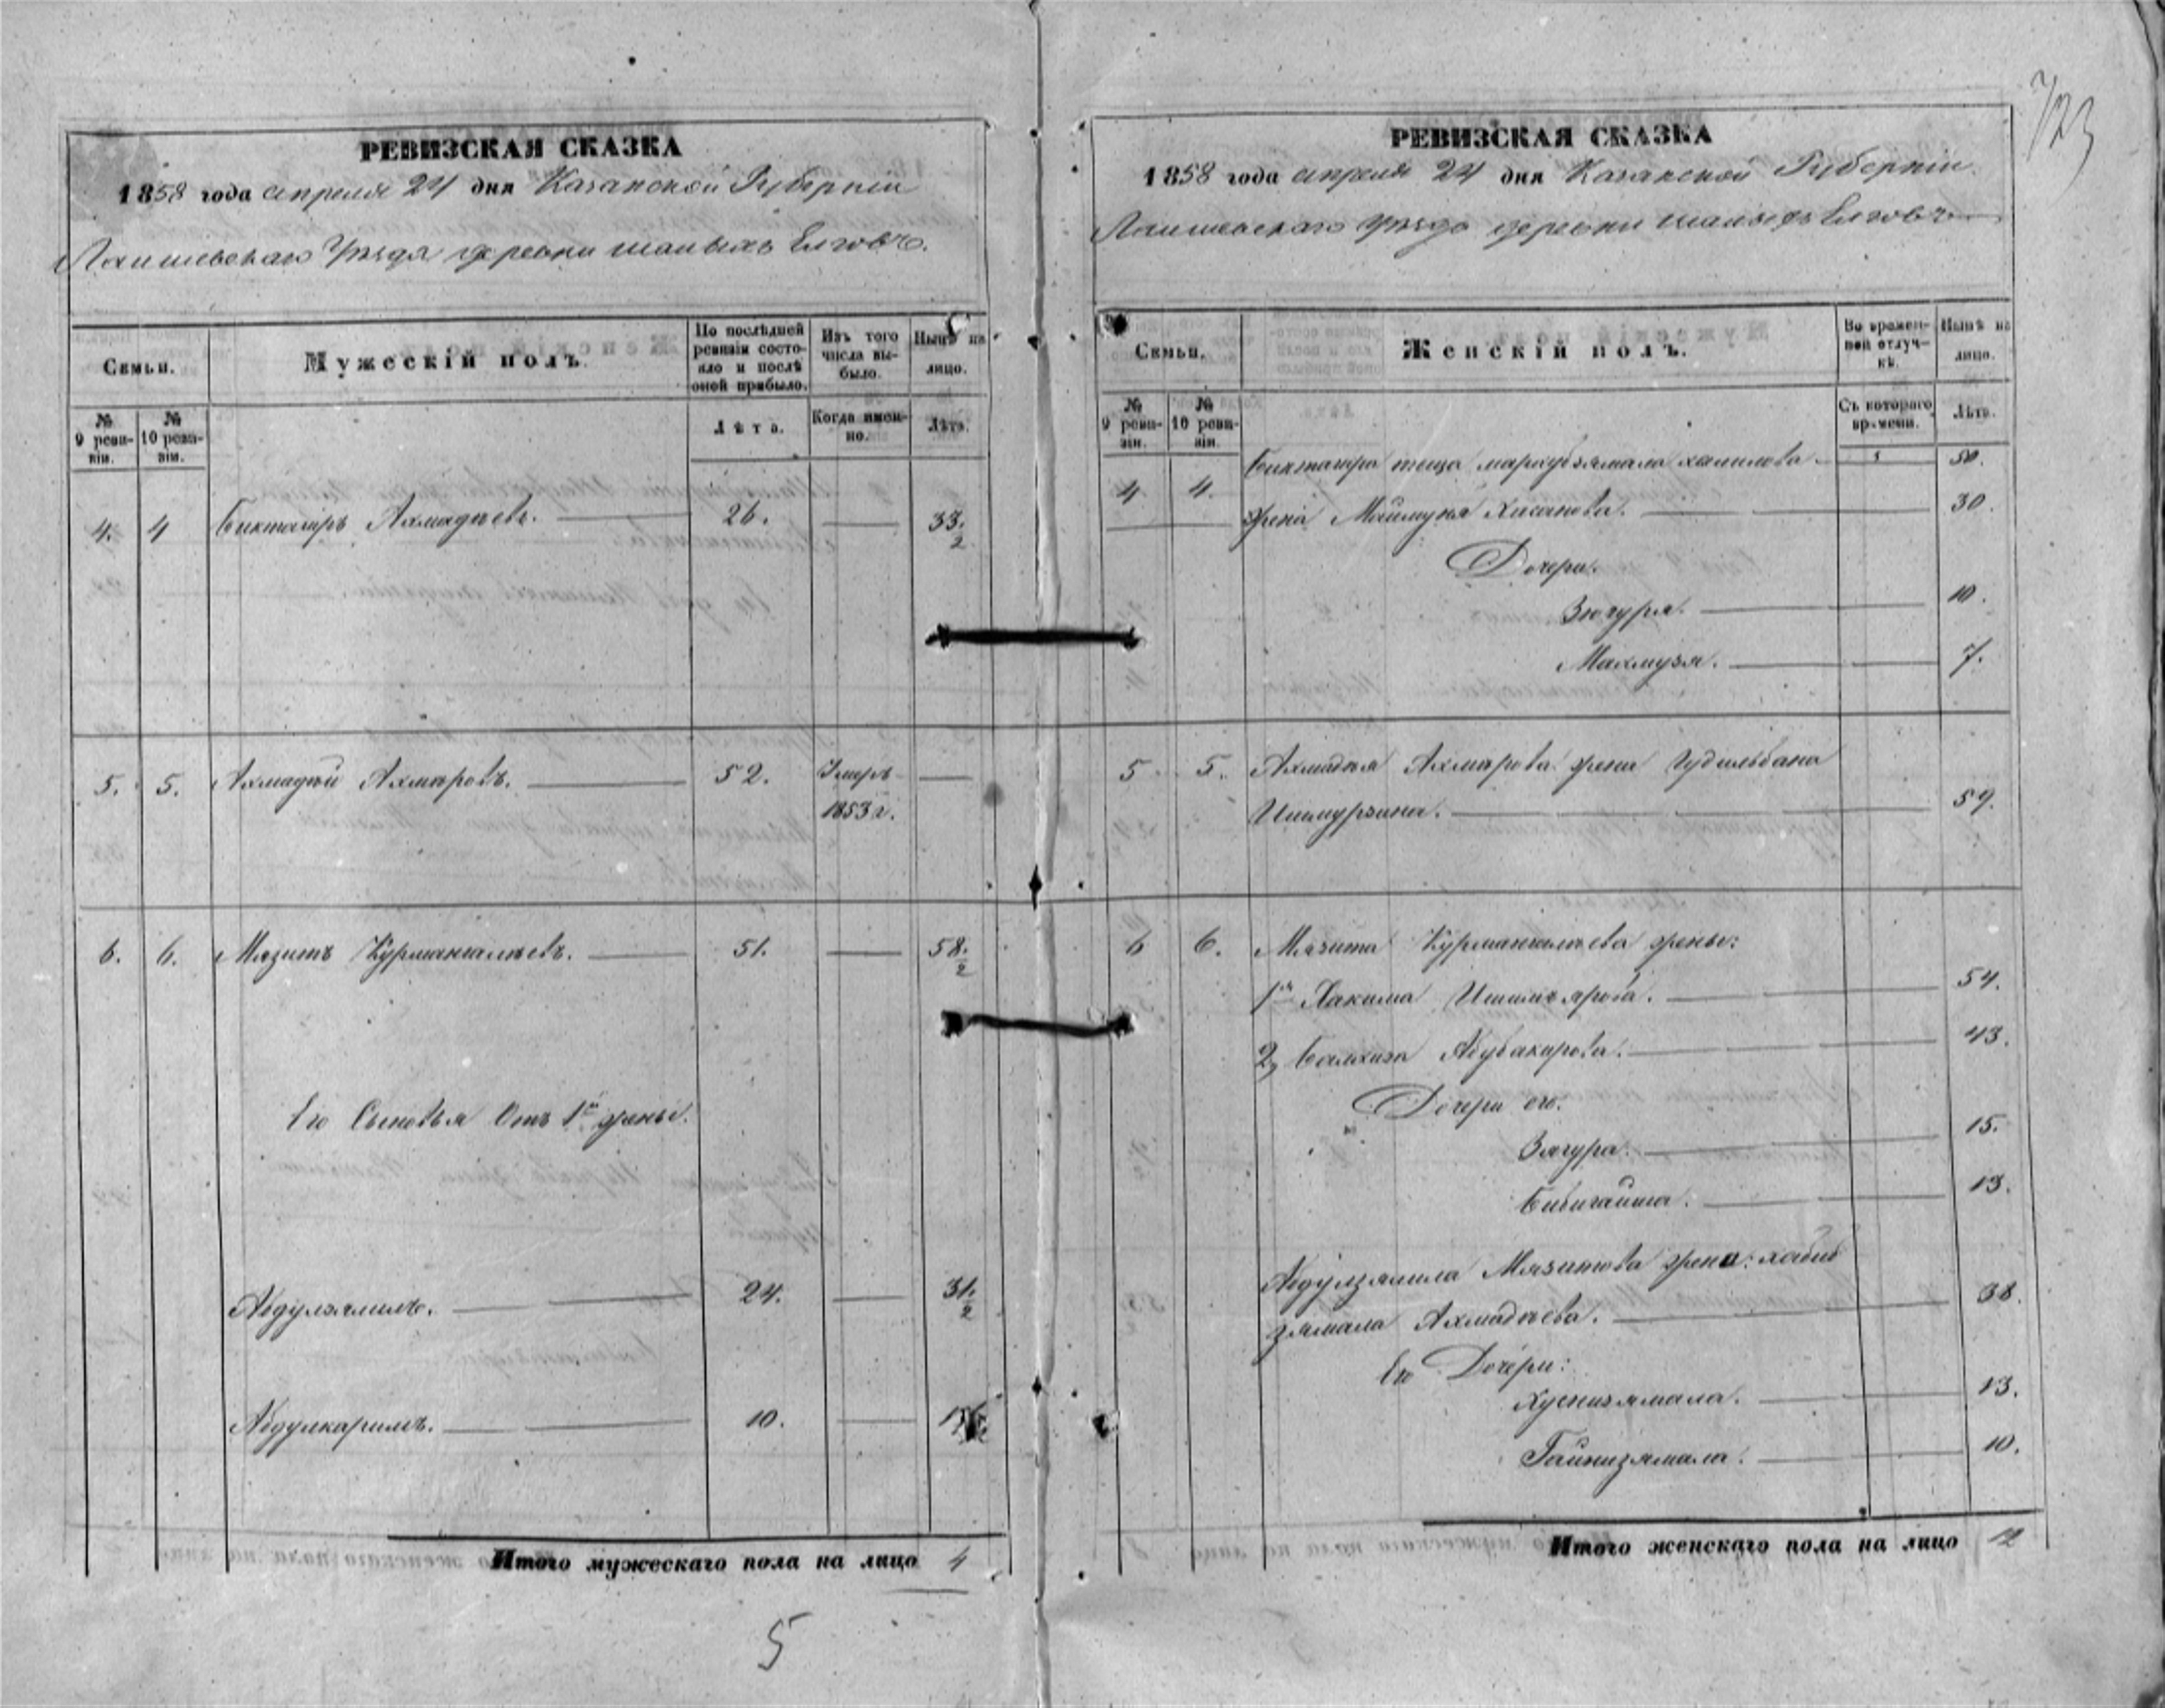 723
РЕВИЗСКАЯ СКАЗКА
1858 года апреля 24 дня Казанской Губерніи
Лаишевскаго Уѣзда деревни
Семьи.
Мужескій полъ.
По послѣдней ревизіи состояло и послѣ оной прибыло.
Изъ того числа выбыло.
Нынѣ на лицо.
№ 9 ревизіи.
№ 10 ревизіи.
Лѣта.
Когда именно.
Лѣта.
4. 4 Биктагиръ Ахмадѣевъ. 26. 33½
5. 5. Ахмадѣй Ахмаровъ. 52. Умеръ
1853 г.
6. 6. Мязитъ Курмангалѣевъ. 51. 58.½
Его Сыновья Отъ 1й жены.
Абдулзялилъ. 24. 31.½
Абдулкаримъ. 10.
Итого мужескаго пола на лицо 4
5
РЕВИЗСКАЯ СКАЗКА
1858 года апреля 24 дня Казанской Губерніи
Лаишевскаго Уѣзда деревни
Семьи.
Женскій полъ.
Во временной отлучкѣ.
Нынѣ на лицо.
№ 9 ревизіи.
№ 10 ревизіи.
Съ котораго времени.
Лѣта.
Биктагира теща 50.
4 4. жена Маймуна Хасанова. 30.
Дочери.
Зюгура. 10.
Махмузя. 7.
5 5. Ахмадѣя Ахмарова жена
Ишмурзина. 59.
6 6. Мязита Курмангалѣева жены:
1я Хакима 54.
2я Абубакирова. 43.
Дочери его.
Зягура. 15.
Бибигайша. 13.
Абдулзялила Мязитова жена: хабиб
зямала Ахмадѣева. 38.
Его Дочери:
Хуснизямала. 13.
Гайнизямала. 10.
Итого женскаго пола на лицо 12